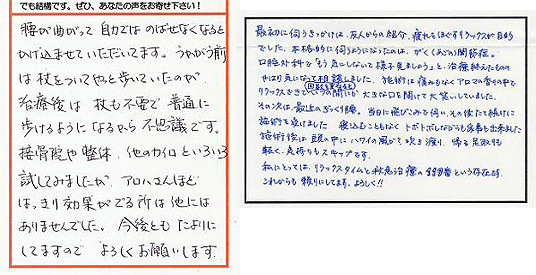 でも結構です。ぜひ、あなたの声をお寄せ下さい！
腰が曲がって 自力では のばせなくなると
かけ込ませていただいてます。うかがう前
は 杖をついてやっと歩いていたのが
治療後は 杖も不要で 普通に
歩けるようになるから 不思議です。
接骨院や整体、他のカイロといろいろ
試してみましたが、アロハさんほど
はっきり効果がでる所は 他には
ありませんでした。 今後とも たよりに
してますので よろしくお願いします
最初に伺うきっかけは、友人からの紹介、疲れをほぐすリラックスが目的
でした。本格的に伺うようになったのは、がく(あご)の関節症。
口腔外科で「もう気にしないで様子見ましょう」と、治療終えたものの
やはり気になって相談しました。 施術は痛みもなくアロマの香りの中で
リラックスできて
回数を重ねると
いつの間にか 大きな口を開けて大笑いしていました。
その次は、最近のぎっくり腰。 当日に飛びこみで伺い、その後たて続けに
施術を受けました 寝込むこともなく トボトボしながらも 家事も出来ました
施術後は 頭の中に ハワイの風がそよ吹き渡り、帰る足取りも
軽く、気持ちもスキップです。
私にとっては、リラックスタイムと 救急治療の 存在です。
これからも 頼りにしてます。よろしく!!